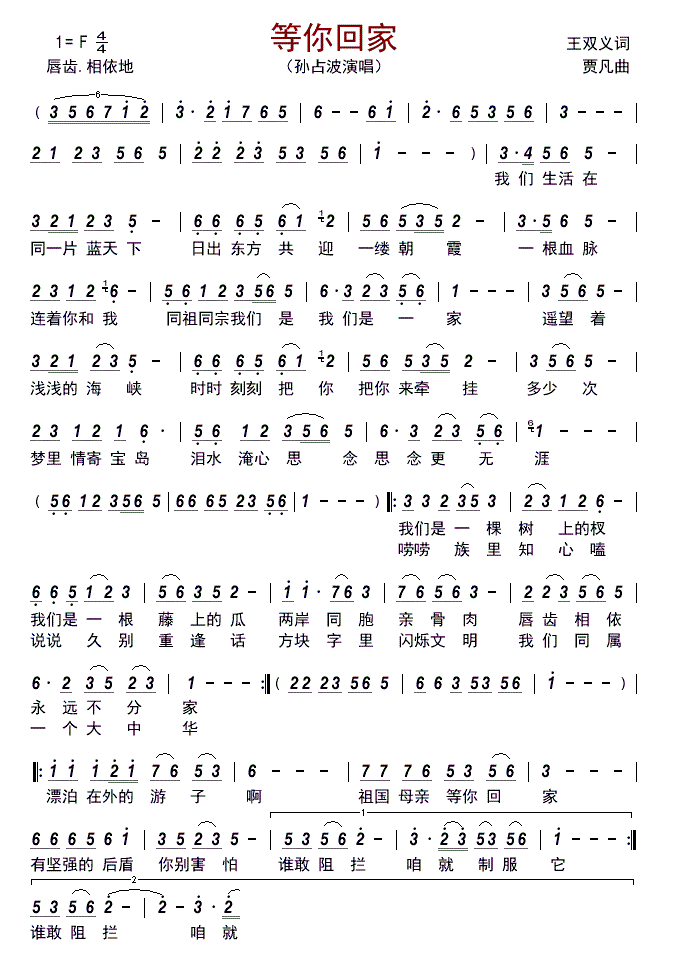 等你回家
1= F 4/4
王双义词
唇齿.相依地
（孙占波演唱）
贾凡曲
( 3 5 6 7 1 2 | 3 · 2 1 7 6 5 | 6 - - 6 1 | 2 · 6 5 3 5 6 | 3 - - - |
2 1 2 3 5 6 5 | 2 2 2 3 5 3 5 6 | 1 - - - ) | 3 · 4 5 6 5 - |
我 们 生活 在
3 2 1 2 3 5 - | 6 6 6 5 6 1 1 2 | 5 6 5 3 5 2 - | 3 · 5 6 5 - |
同一片 蓝天 下 日出 东方 共 迎 一缕 朝 霞 一 根血 脉
2 3 1 2 1 6 - | 5 6 1 2 3 5 6 5 | 6 · 3 2 3 5 6 | 1 - - - | 3 · 5 6 5 - |
连着你和 我 同祖同宗我们 是 我 们是 一 家 遥望 着
3 2 1 2 3 5 - | 6 6 6 5 6 1 1 2 | 5 6 5 3 5 2 - | 3 · 5 6 5 - |
浅浅的 海 峡 时时 刻刻 把 你 把你 来牵 挂 多少 次
2 3 1 2 1 6 · | 5 6 1 2 3 5 6 5 | 6 · 3 2 3 5 6 | 6 1 - - - |
梦里 情寄 宝 岛 泪水 淹心 思 念 思 念 更 无 涯
( 5 6 1 2 3 5 6 5 | 6 6 6 5 2 3 5 6 | 1 - - ) |: 3 3 2 3 5 3 | 2 3 1 2 6 - |
我们是 一 棵 树 上的 杈
唠唠 族 里 知 心 嗑
6 6 5 1 2 3 | 5 6 3 5 2 - | 1 1 · 7 6 3 | 7 6 5 6 3 - | 2 3 5 6 5 |
我们是 一 根 藤 上的 瓜 两岸 同 胞 亲 骨 肉 唇 齿 相 依
说说 久 别 重 逢 话 方块 字 里 闪烁文 明 我 们 同 属
6 · 2 3 5 2 3 | 1 - - - :| ( 2 2 2 3 5 6 5 | 6 6 3 5 3 5 6 | 1 - - - ) |
永 远 不 分 家
一 个 大 中 华
|: 1 1 1 2 1 7 6 5 3 | 6 - - - | 7 7 7 6 5 3 5 6 | 3 - - - |
漂泊 在外的 游 子 啊 祖国 母亲 等你 回 家
1
6 6 6 5 6 1 | 3 5 2 3 5 - | 5 3 5 6 2 - | 3 · 2 3 5 3 5 6 | 1 - - - :|
有坚强的 后盾 你别害 怕 谁敢 阻 拦 咱 就 制 服 它
2
5 3 5 6 2 - | 2 - 3 · 2
谁敢 阻 拦 咱 就